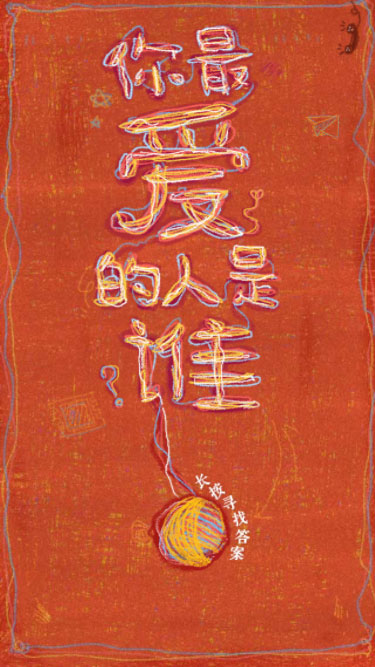 你最
爱
的人是
谁
?
长按寻找答案